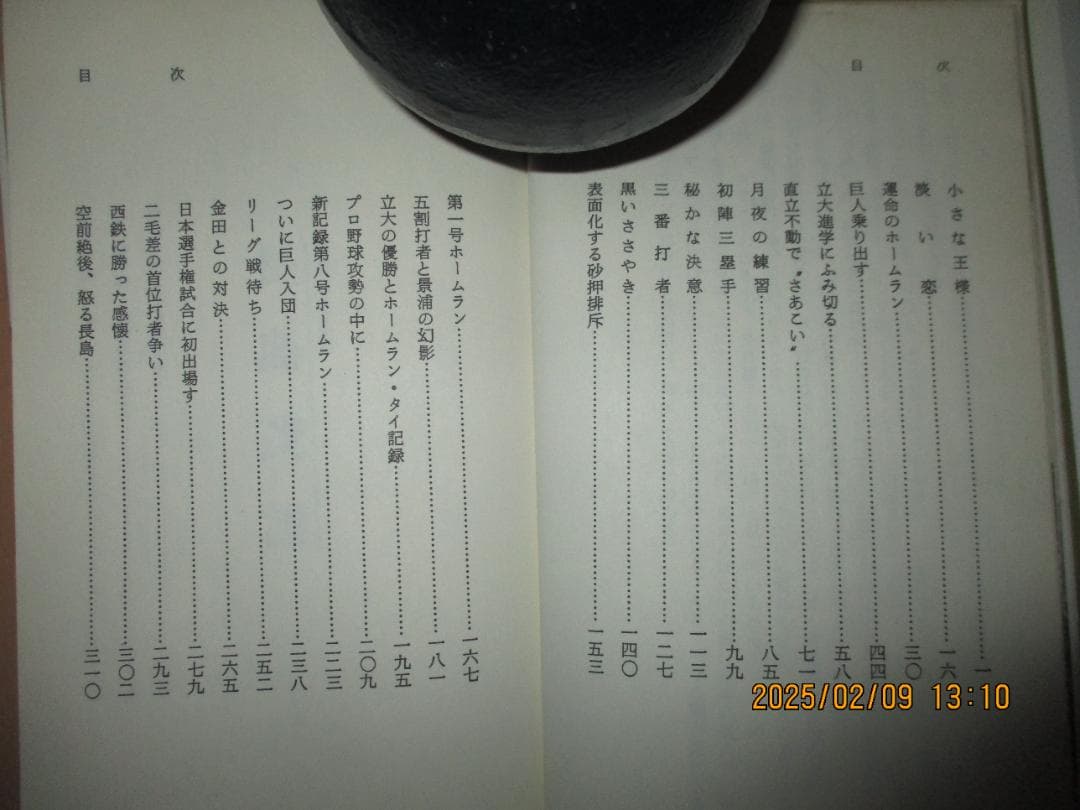 目次
小さな王様……一
淡い恋……一六
運命のホームラン……三〇
巨人乗り出す……四四
立大進学にふみ切る……五八
直立不動で〝さあこい〟……七一
月夜の練習……八五
初陣三塁手……九九
秘かな決意……一一三
三番打者……一二七
黒いささやき……一四〇
表面化する砂押排斥……一五三
目次
第一号ホームラン……一六七
五割打者と景浦の幻影……一八一
立大の優勝とホームラン・タイ記録……一九五
プロ野球攻勢の中に……二〇九
新記録第八号ホームラン……二二三
ついに巨人入団……二三八
リーグ戦待ち……二五二
金田との対決……二六五
日本選手権試合に初出場す……二七九
二毛差の首位打者争い……二九三
西鉄に勝った感懐……三〇二
空前絶後、怒る長島……三一〇
2025/02/09 13:10